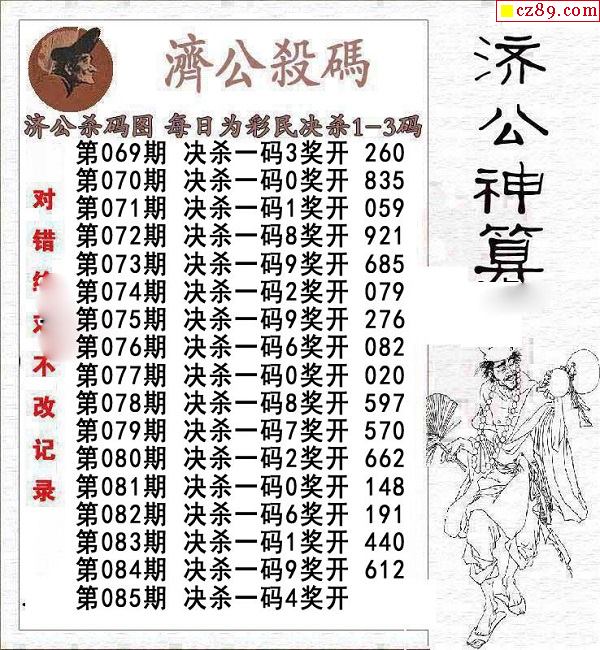 cz89.com
濟公殺碼
济公杀码图 每日为彩民决杀1-3码
第069期 决杀一码3奖开 260
第070期 决杀一码0奖开 835
第071期 决杀一码1奖开 059
第072期 决杀一码8奖开 921
第073期 决杀一码9奖开 685
第074期 决杀一码2奖开 079
第075期 决杀一码9奖开 276
第076期 决杀一码6奖开 082
第077期 决杀一码0奖开 020
第078期 决杀一码8奖开 597
第079期 决杀一码7奖开 570
第080期 决杀一码2奖开 662
第081期 决杀一码0奖开 148
第082期 决杀一码6奖开 191
第083期 决杀一码1奖开 440
第084期 决杀一码9奖开 612
第085期 决杀一码4奖开
对错 不改记录
济公神算